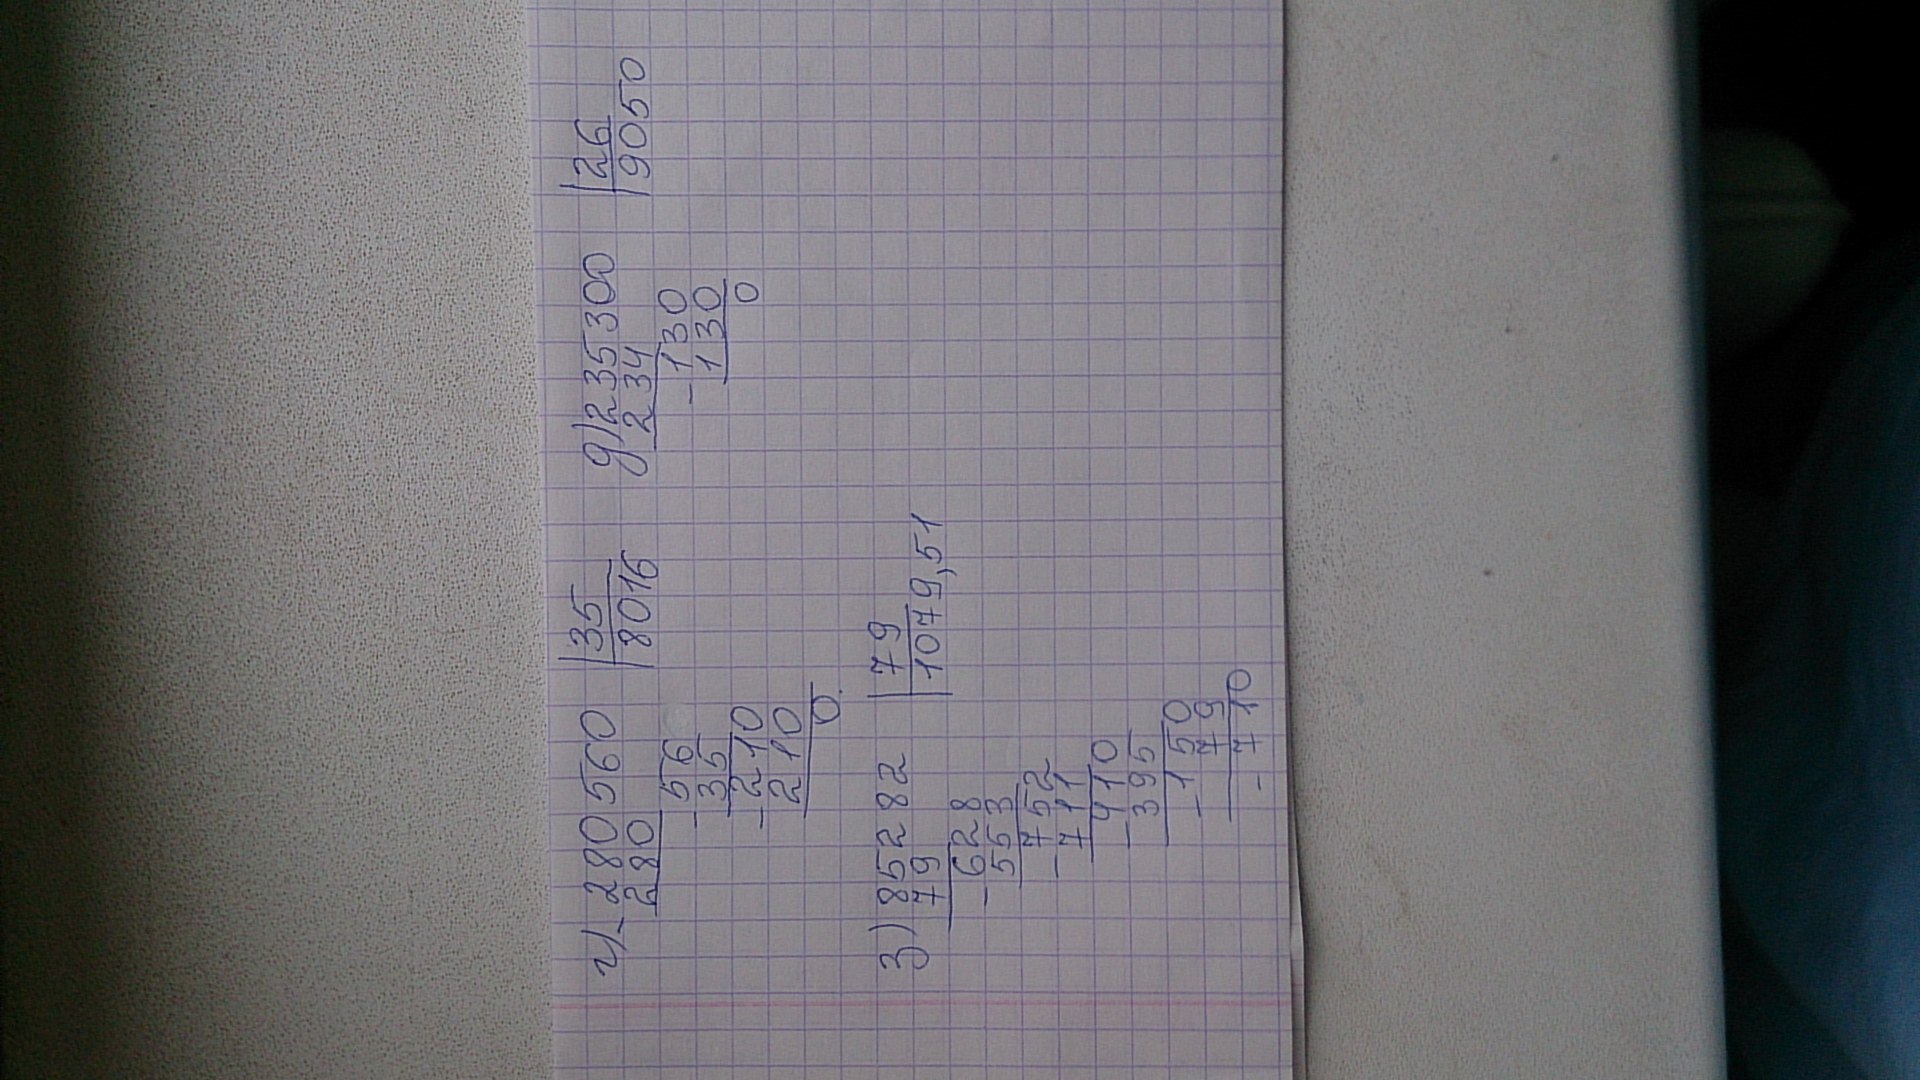 г) 280560 | 35 д) 235300 | 26
280 | 8016 234 | 9050
- 56 - 130
35 130
- 210 0
210
0
з) 85282 | 79
79 | 1079,51
- 628
553
- 752
711
- 410
395
- 150
79
- 710